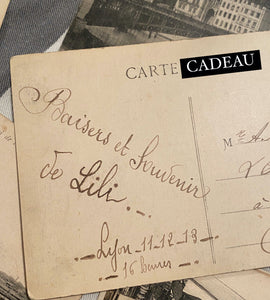 CARTE CADEAU
Baisers et Souvenir
de Lili.
Lyon_11_12_13
16 heures
Me A
à